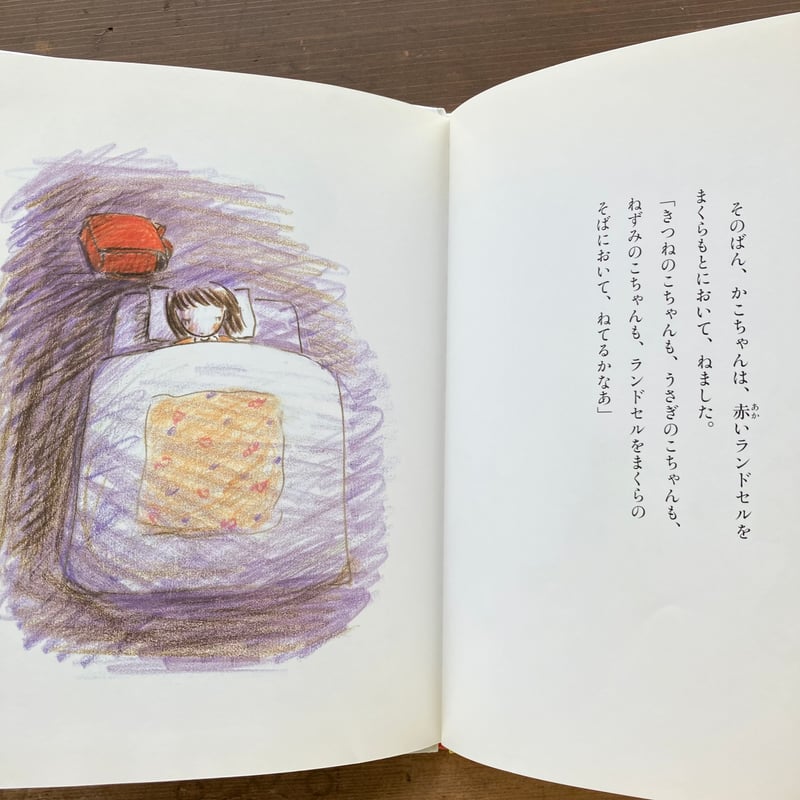 そのばん、かこちゃんは、赤いランドセルを
まくらもとにおいて、ねました。
「きつねのこちゃんも、うさぎのこちゃんも、
ねずみのこちゃんも、ランドセルをまくらの
そばにおいて、ねてるかなあ」